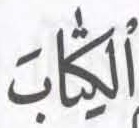 الْكِتٰابَ